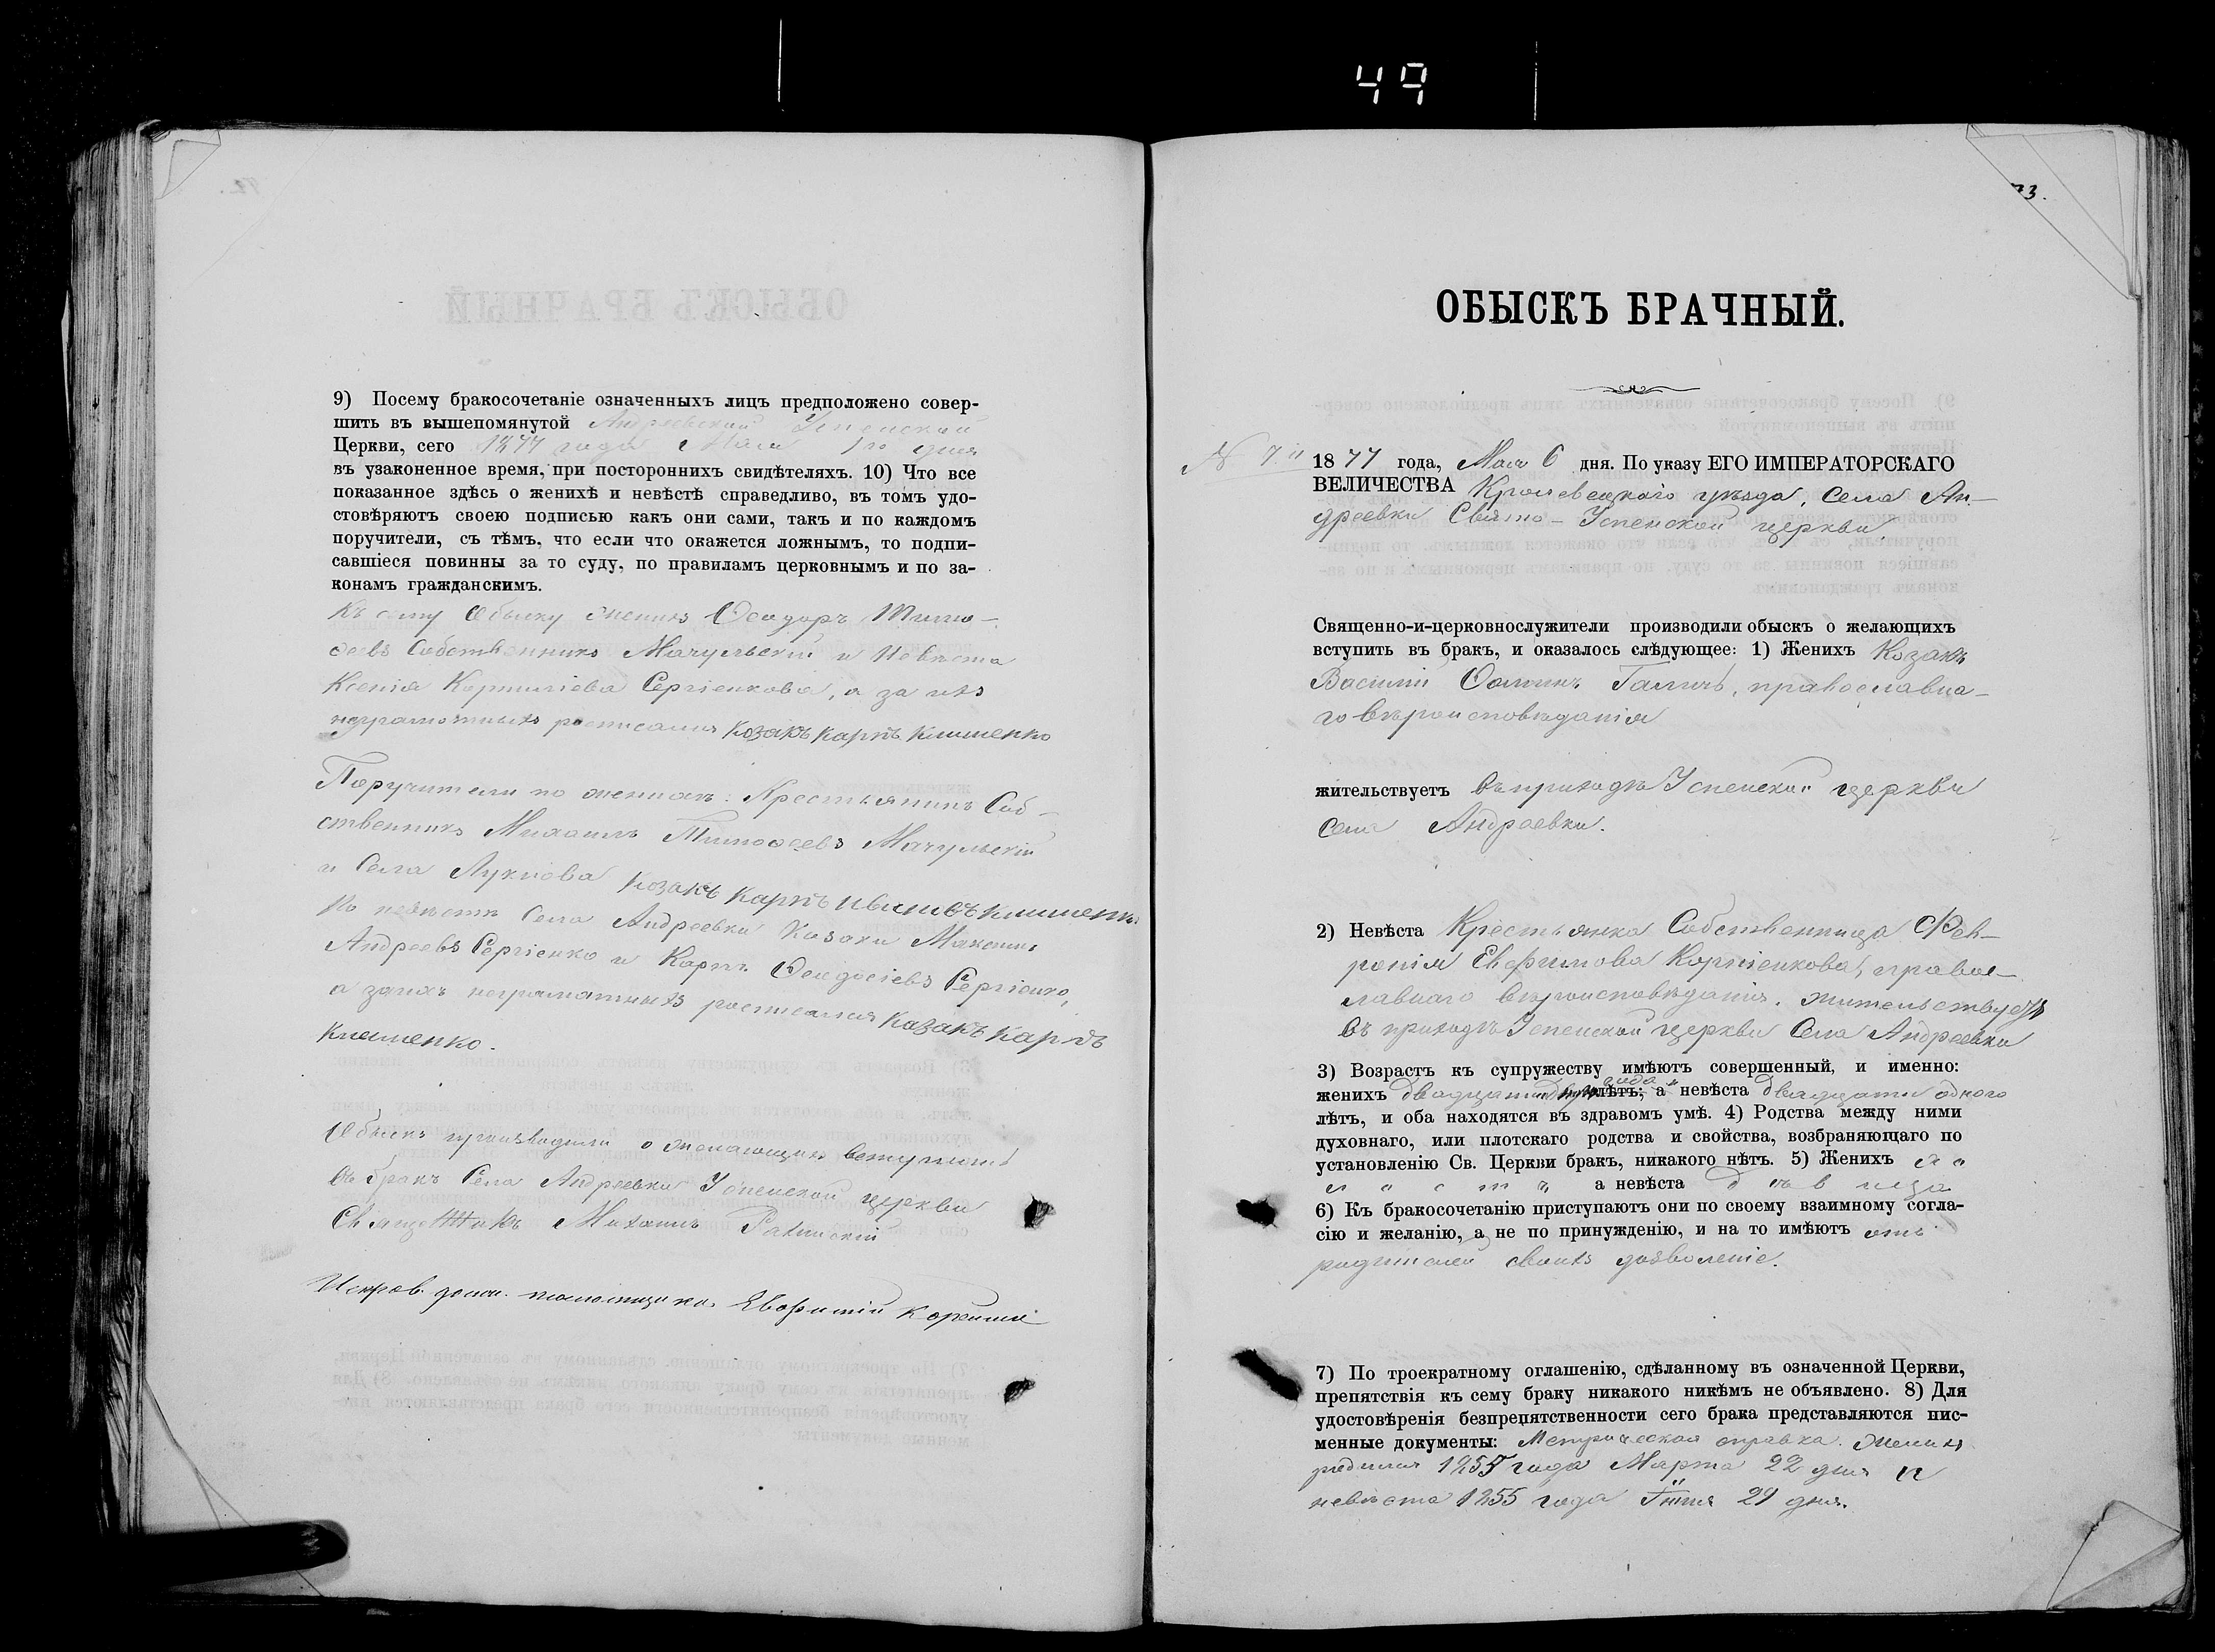 49
9) Посему бракосочетаніе означенныхъ лицъ предположено совер-
шить въ вышепомянутой Андреевской Успенской
Церкви, сего 1877 года Мая дня
въ узаконенное время, при постороннихъ свидѣтеляхъ. 10) Что все
показанное здѣсь о женихѣ и невѣстѣ справедливо, въ томъ удо-
стовѣряютъ своею подписью какъ они сами, такъ и по каждомъ
поручители, съ тѣмъ, что если что окажется ложнымъ, то подпи-
савшіеся повинны за то суду, по правиламъ церковнымъ и по за-
конамъ гражданскимъ.
Къ сему Обыску женихъ Ѳеодоръ Тимо-
ѳеевъ Собственникъ Мачульскій и Невѣста
Ксенія Корниліева Сергіенкова, а за ихъ
неграмотныхъ росписался козакъ карпъ клименко
Поручители по женихъ: Крестьянинъ Соб-
ственникъ Михаилъ Тимоѳеевъ Мачульскій
и Села Лукнова козакъ карпъ ивановъ клименко
по невѣстѣ Села Андреевки Козаки Максимъ
Андреевъ Сергіенко и Карпъ Ѳеодосіевъ Сергіенко,
а за ихъ неграмотныхъ росписался козакъ карпъ
клименко.
Обыскъ производили о желающихъ вступить
въ бракъ Села Андреевки Успенской церкви
Священникъ Михаилъ
Исправ. долж. псаломщика Евфимій
73.
ОБЫСКЪ БРАЧНЫЙ.
№ 7.й 1877 года, Мая 6 дня. По указу ЕГО ИМПЕРАТОРСКАГО
ВЕЛИЧЕСТВА Кролевецкаго уѣзда, Села Ан-
дреевки Свято-Успенской церкви
Священно-и-церковнослужители производили обыскъ о желающихъ
вступить въ бракъ, и оказалось слѣдующее: 1) Женихъ Козакъ
Василій Ѳоминъ Галичъ, православна-
го вѣроисповѣданія
жительствуетъ въ приходѣ Успенской церкви
Села Андреевки.
2) Невѣста Крестьянка Собственница Фев-
ронія Евфимова Корніенкова, правос-
лавнаго вѣроисповѣданія. жительствуетъ
въ приходѣ Успенской церкви Села Андреевки
3) Возрастъ къ супружеству имѣютъ совершенный, и именно:
женихъ двадцати года лѣтъ; а невѣста двадцати одного
лѣтъ, и оба находятся въ здравомъ умѣ. 4) Родства между ними
духовнаго, или плотскаго родства и свойства, возбраняющаго по
установленію Св. Церкви бракъ, никакого нѣтъ. 5) Женихъ хо
лостъ а невѣста дѣвица
6) Къ бракосочетанію приступаютъ они по своему взаимному согла-
сію и желанію, а не по принужденію, и на то имѣютъ отъ
родителей своихъ дозволеніе.
7) По троекратному оглашенію, сдѣланному въ означенной Церкви,
препятствія къ сему браку никакого никѣмъ не объявлено. 8) Для
удостовѣренія безпрепятственности сего брака представляются пис-
менные документы: Метрическая справка. Женихъ
родился 1855 года Марта 22 дня и
невѣста 1855 года Іюня 21 дня.